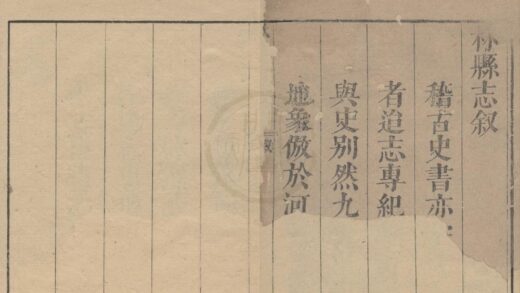 林縣志叙
稽古史書亦
者迨志專紀
與史别然九
地象倣於河
叙